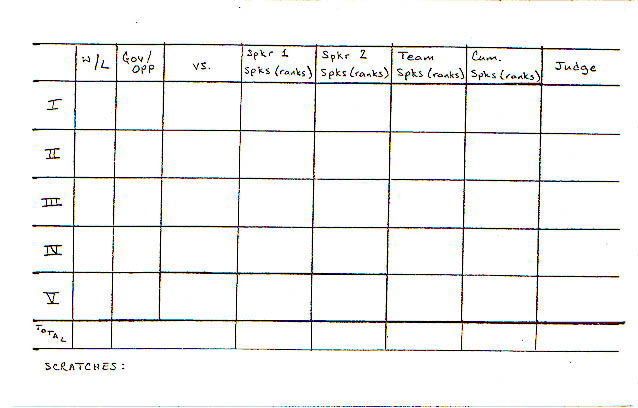 W/L
Gov/
OPP
vs.
Spkr 1
Spks (ranks)
Spkr 2
Spks (ranks)
Team
Spks (ranks)
Cum.
Spks (ranks)
Judge
I
II
III
IV
V
TOTAL
SCRATCHES: